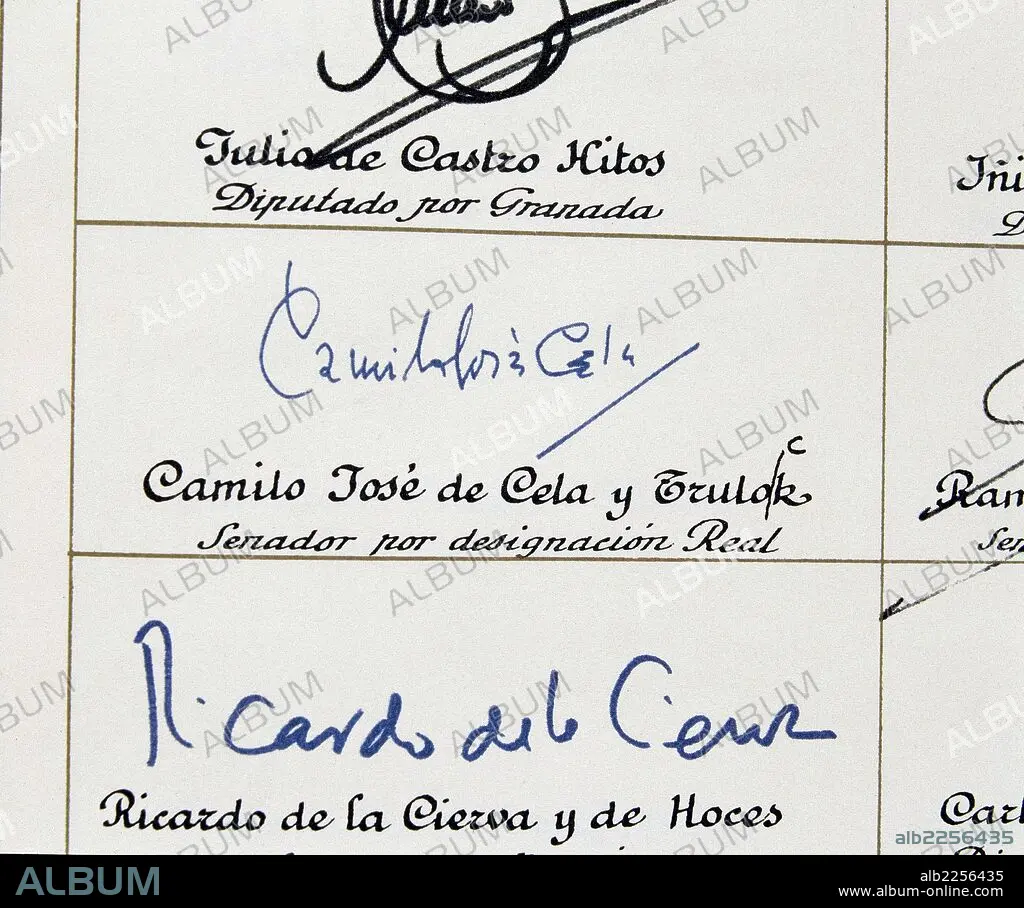 Julio de Castro Hitos
Diputado por Granada
Camilo José Cela
c
Camilo José de Cela y Trulok
Senador por designación Real
Ricardo de la Cierva
Ricardo de la Cierva y de Hoces
Iñi
D
Ram
Sen
Carl
alb2256435
ALBUM
alb2256435
www.album-online.com